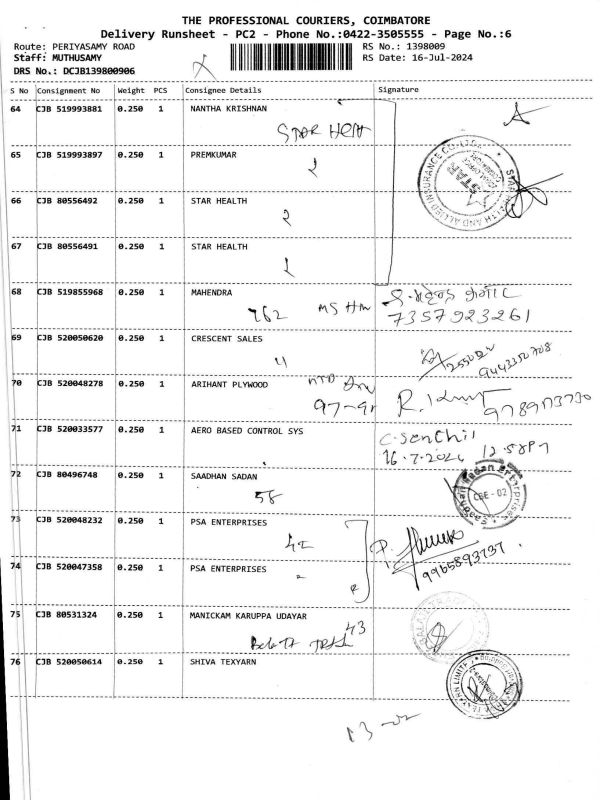 THE PROFESSIONAL COURIERS, COIMBATORE
Delivery Runsheet - PC2 - Phone No.:0422-3505555 - Page No.:6
Route: PERIYASAMY ROAD RS No.: 1398009
Staff: MUTHUSAMY RS Date: 16-Jul-2024
DRS No.: DCJB139800906
S No Consignment No Weight PCS Consignee Details Signature
64 CJB 519993881 0.250 1 NANTHA KRISHNAN
STAR Helth
65 CJB 519993897 0.250 1 PREMKUMAR
STAR HEALTH AND ALLIED INSURANCE CO. LTD.
66 CJB 80556492 0.250 1 STAR HEALTH
67 CJB 80556491 0.250 1 STAR HEALTH
68 CJB 519855968 0.250 1 MAHENDRA
762
7357923261
69 CJB 520050620 0.250 1 CRESCENT SALES
70 CJB 520048278 0.250 1 ARIHANT PLYWOOD
71 CJB 520033577 0.250 1 AERO BASED CONTROL SYS
C. Senthil
16.7.2024
72 CJB 80496748 0.250 1 SAADHAN SADAN
58
CBE - 02
73 CJB 520048232 0.250 1 PSA ENTERPRISES
9965893737
74 CJB 520047358 0.250 1 PSA ENTERPRISES
75 CJB 80531324 0.250 1 MANICKAM KARUPPA UDAYAR
43
76 CJB 520050614 0.250 1 SHIVA TEXYARN